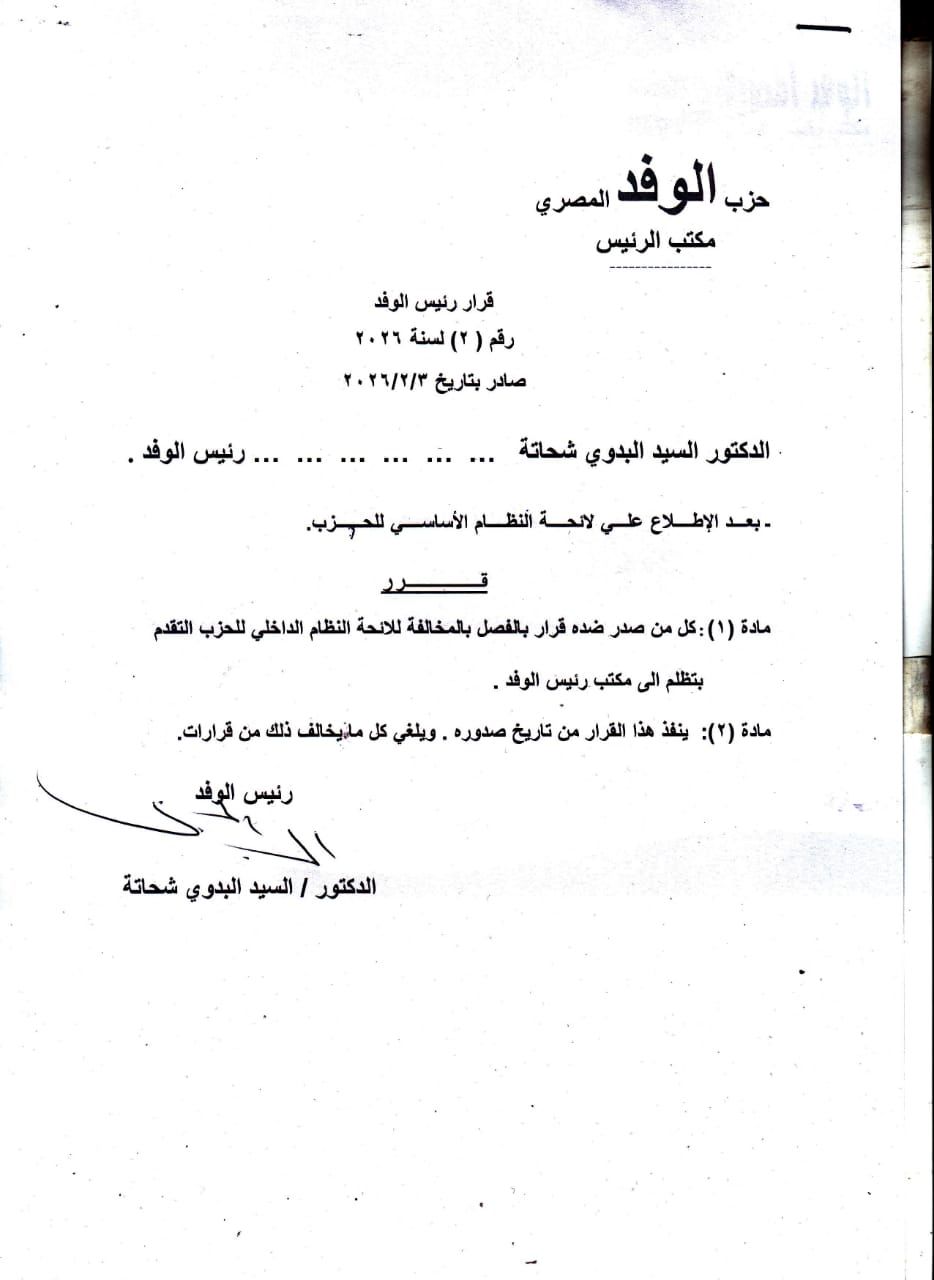 حزب الوفد المصري
مكتب الرئيس
----------------
قرار رئيس الوفد
رقم ( ٢ ) لسنة ٢٠٢٦
صادر بتاريخ ٢٠٢٦/٢/٣
الدكتور السيد البدوي شحاتة ... ... ... ... ... ... رئيس الوفد .
- بعـد الإطـلاع علـي لائحـة النظـام الأساسـي للحـزب.
قـــــــرر
مادة (١):كل من صدر ضده قرار بالفصل بالمخالفة للائحة النظام الداخلي للحزب التقدم
بتظلم الى مكتب رئيس الوفد .
مادة (٢): ينفذ هذا القرار من تاريخ صدوره . ويلغي كل ما يخالف ذلك من قرارات.
رئيس الوفد
الدكتور / السيد البدوي شحاتة